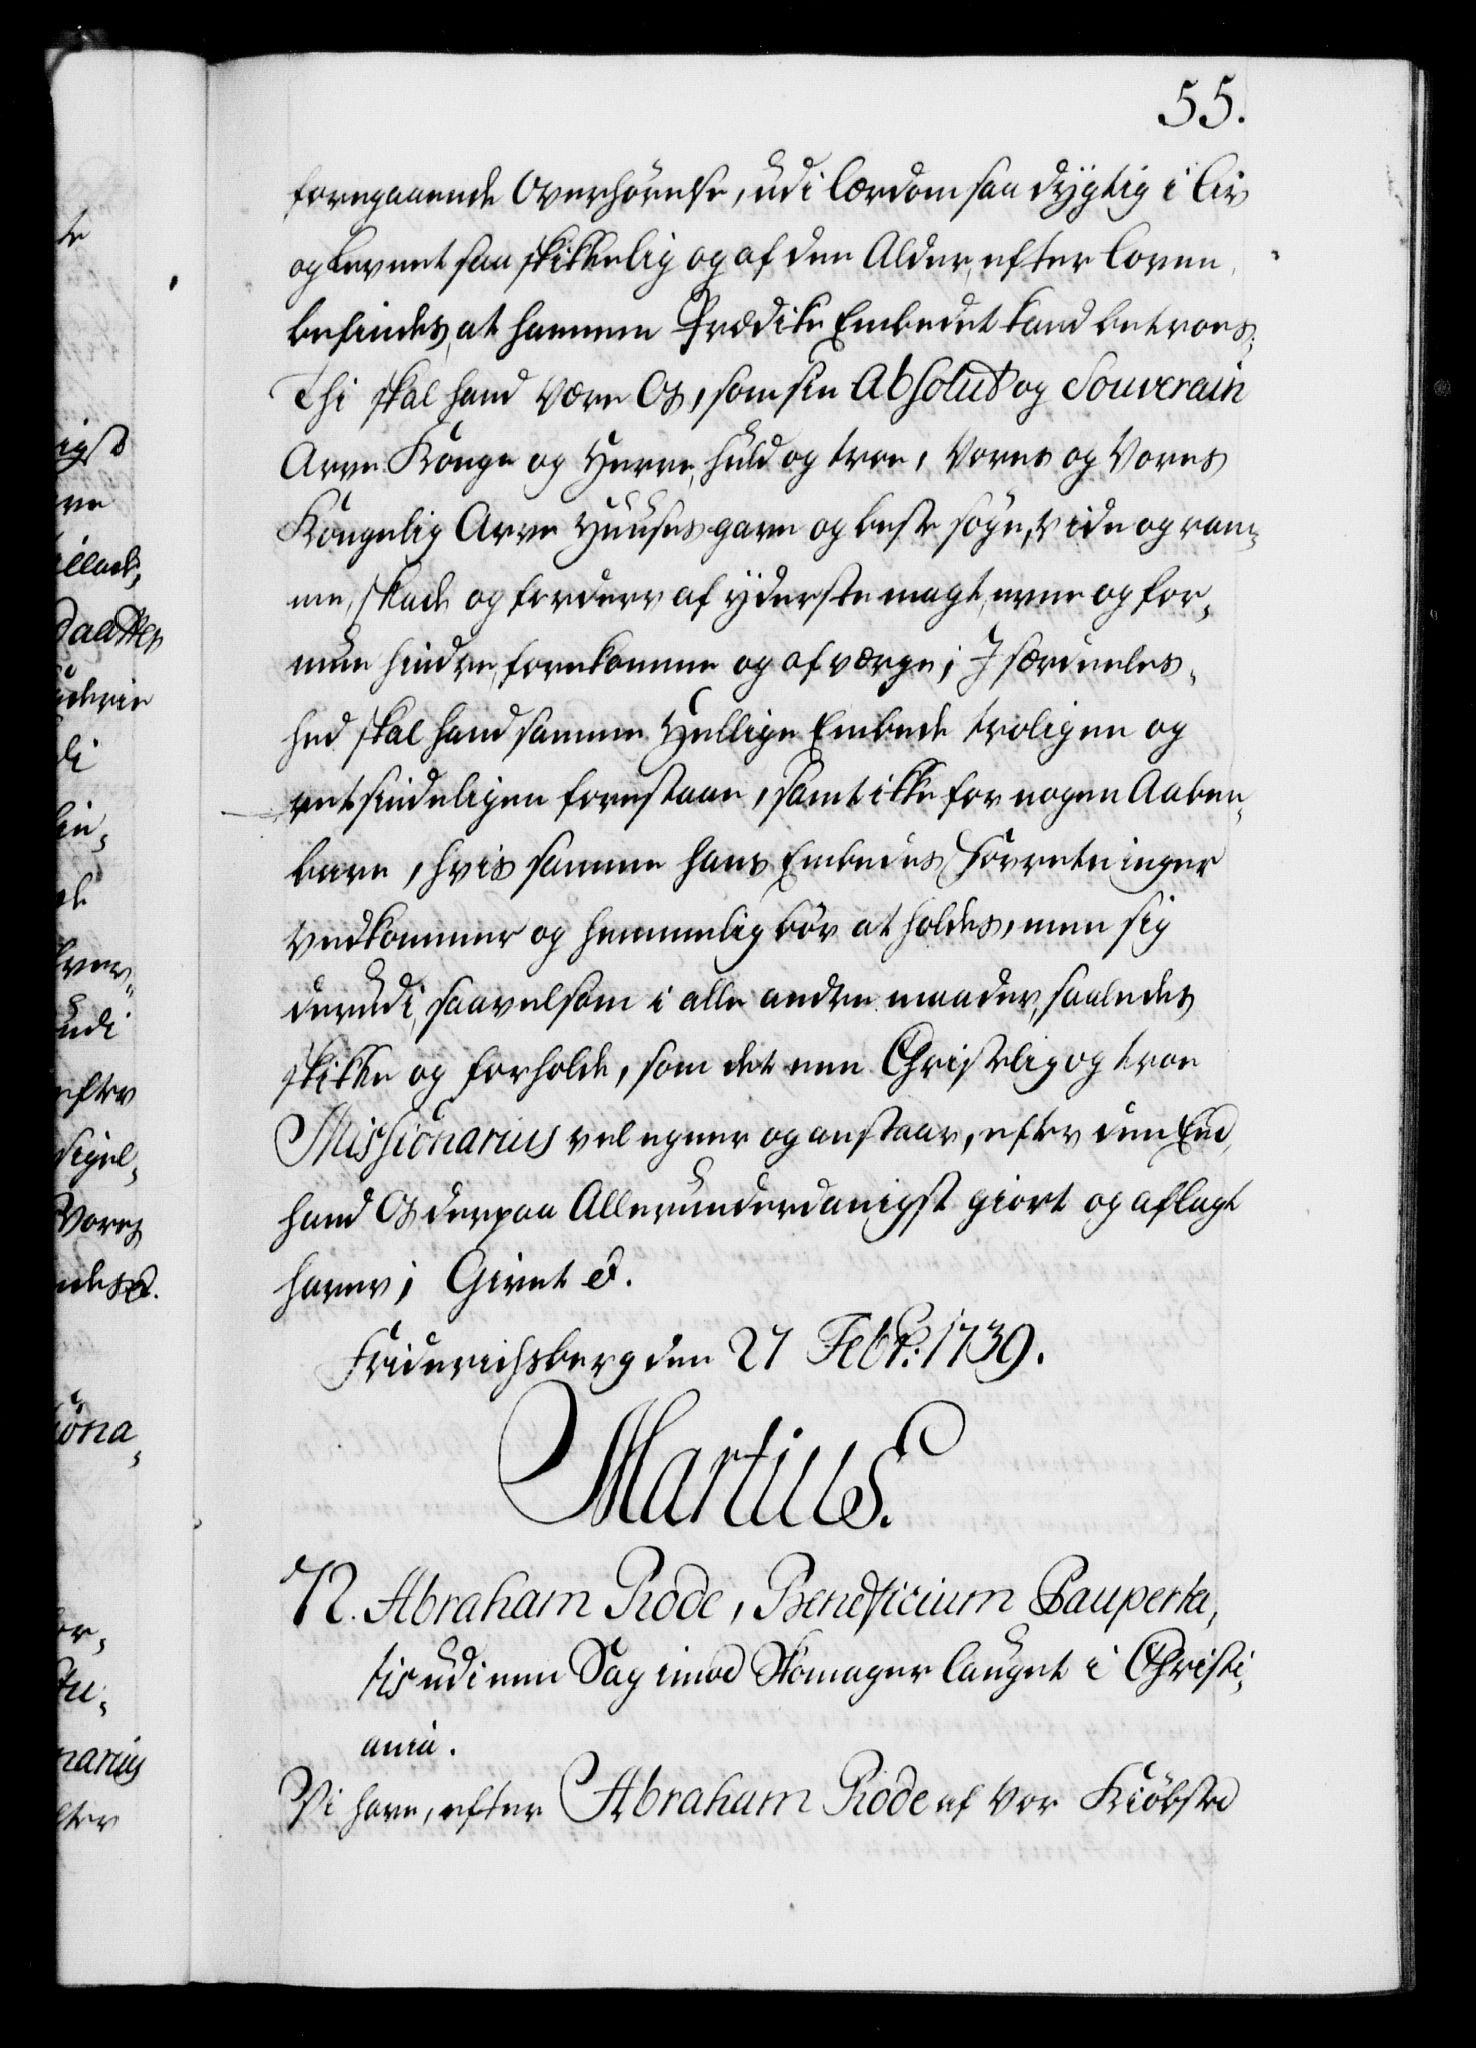 55.
foregaaende Overhørelse, udi Lærdom saa dygtig i Liv
og Levnet saa skikkelig og af den Alder, efter Loven
befindes, at hannem Prædike Embedet kand betroes;
Thi skal hand være Os, som sin Absolut og Souverain
Arve Konge og Herre, huld og troe, Vores og Vores
Kongelig Arve Huuses gavn og beste søge, vide og ram¬
me, skade og forderv af yderste magt, evne og for¬
mue hindre, forekomme og afværge; I særdeeles¬
hed skal hand samme Hellige Embede troligen og
retsindeligen forestaae, samt ikke for nogen Aaben¬
bare, hvis samme hans Embedes Forretninger
vedkommer og hemmelig bør at holdes, men sig
derudi, saavelsom i alle andre maader, saaledes
skikke og forholde, som det een Christelig og troe
Missionarius vel egner og anstaar, efter den Eed,
hand Os derpaa Allerunderdanigst giort og aflagt
haver; Givet &.
Friderichsberg den 27 Febr: 1739.
Martius.
72. Abraham Rode, Beneficium Pauperta¬
tis udi een Sag imod Skomager Lauget i Christi¬
ania.
Vi have, efter Abraham Rode af Vor Kiøbsted
te
igst
ve
illad¬
Daatter
di
lin¬
de
hver¬
udi
efter
Sigel¬
Vores
iona¬
or¬
narius
efter